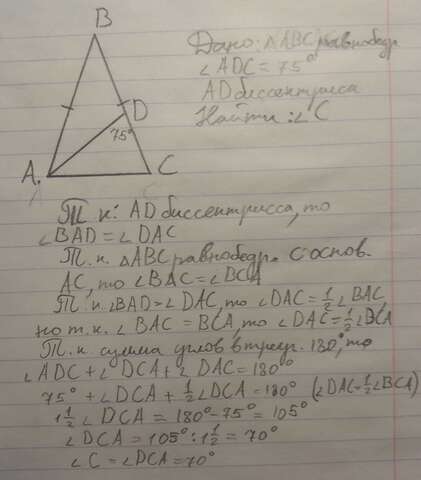 B
Дано: △ABC равнобедр.
∠ADC = 75°
AD биссектриса
Найти: ∠C
D
75°
A
C
Т. к. AD биссектрисса, то
∠BAD = ∠DAC
Т. к. △ABC равнобедр. с основ.
AC, то ∠BAC = ∠BCA
Т. к. ∠BAD = ∠DAC, то ∠DAC = 1/2 ∠BAC,
но т. к. ∠BAC = BCA, то ∠DAC = 1/2 ∠BCA
Т. к. сумма углов в треуг. 180°, то
∠ADC + ∠DCA + ∠DAC = 180°
75° + ∠DCA + 1/2 ∠DCA = 180° (∠DAC = 1/2 ∠BCA)
1 1/2 ∠DCA = 180° - 75° = 105°
∠DCA = 105° : 1 1/2 = 70°
∠C = ∠DCA = 70°